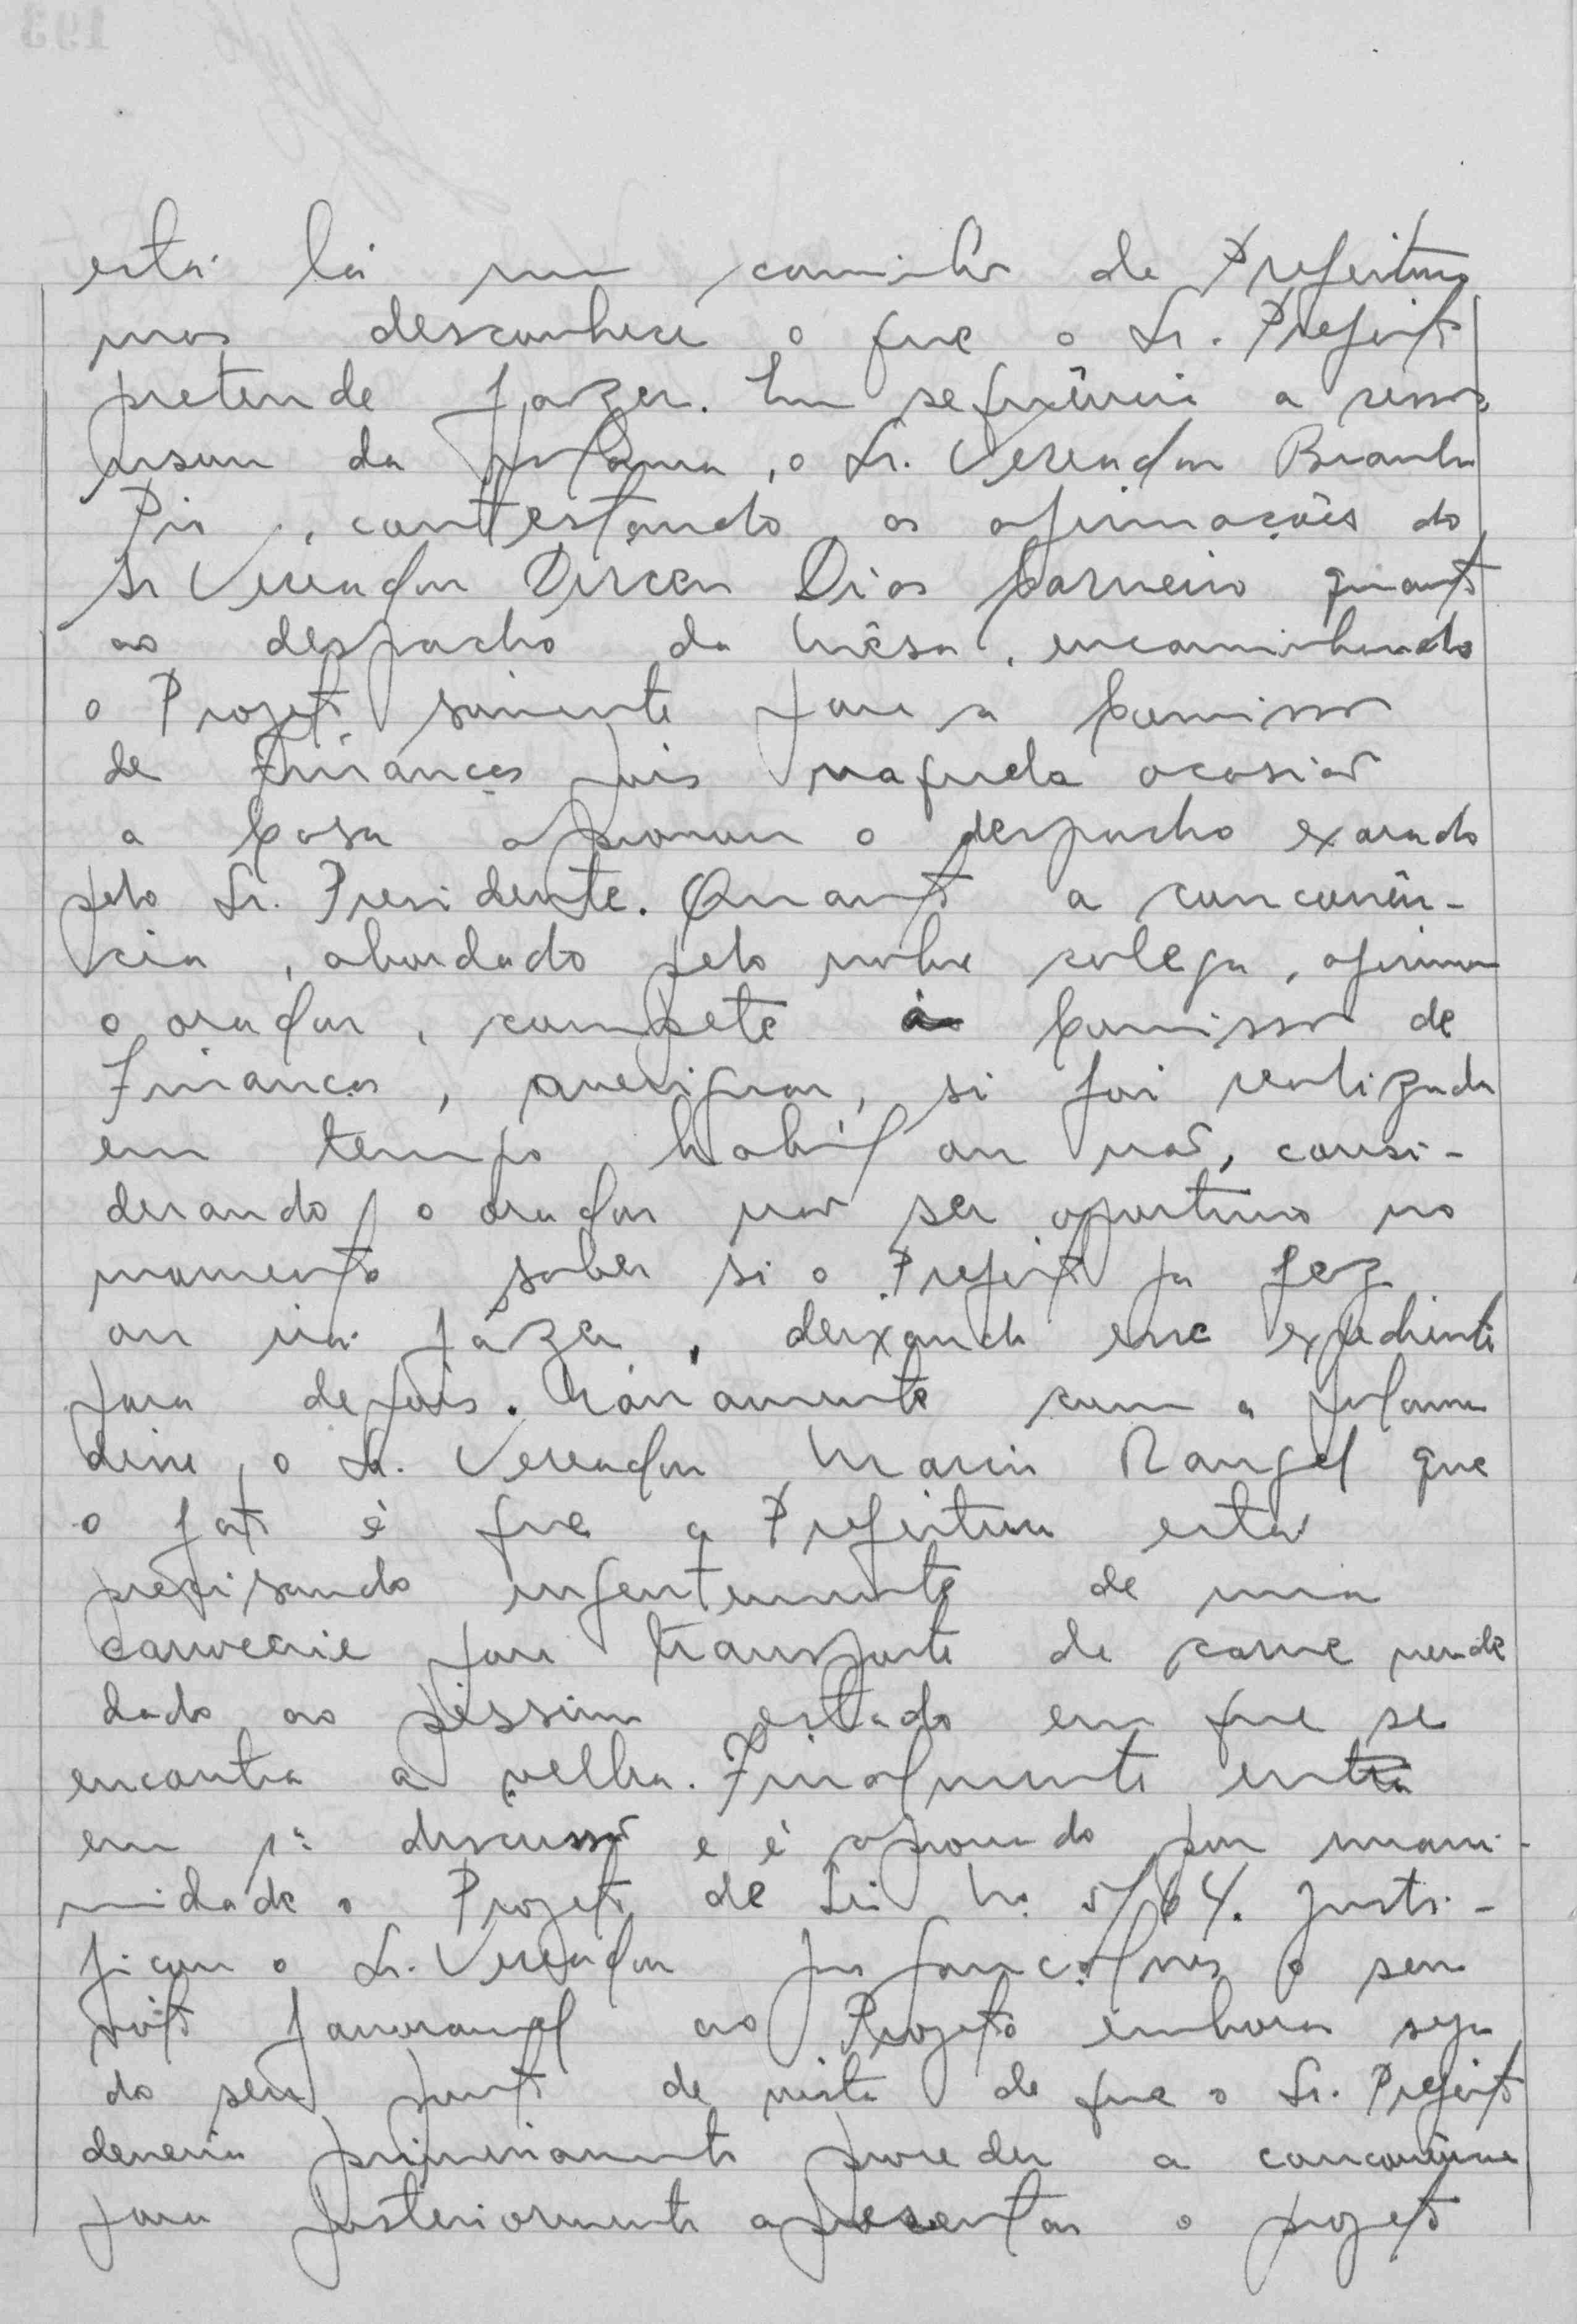 está lá um caminhão de Prefeitura
mas desconhece o que o Sr. Prefeito
pretende fazer. Em sequência a sessão
usou da palavra, o Sr. Vereador Brandi
Pio, contestando as afirmações do
Sr Vereador Dirceu Dias Carneiro quanto
ao despacho da Mêsa, encaminhando
o Projeto sómente para a Comissão
de Finanças pois naquela ocasião
a Casa aprovou o despacho exarado
pelo Sr. Presidente. Quanto a concorrên-
cia, abordado pelo nobre colega, afirmou
o orador, compete à Comissão de
Finanças, averiguar, si foi realizada
em tempo habil ou não, consi-
derando o orador não ser oportuno no
momento saber si o Prefeito ja fez
ou irá fázer, deixando esse expediente
para depois. Nóvamente com a palavra
disse, o Sr. Vereador Mario Rangel que
o fato é que a Prefeitura está
precisando urgentemente de uma
para transporte de carne verde
dado ao péssimo estado em que se
encontra a velha. Finalmente entra
em 1ª discussão e é aprovado por unani-
midade o Projeto de Lei No 5/64. Justi-
ficou o Sr. Vereador o seu
voto favoravel ao Projeto embora seja
do seu ponto de vista de que o Sr. Prefeito
deveria primeiramente proceder a concorrência
para posteriormente apresentar o projeto